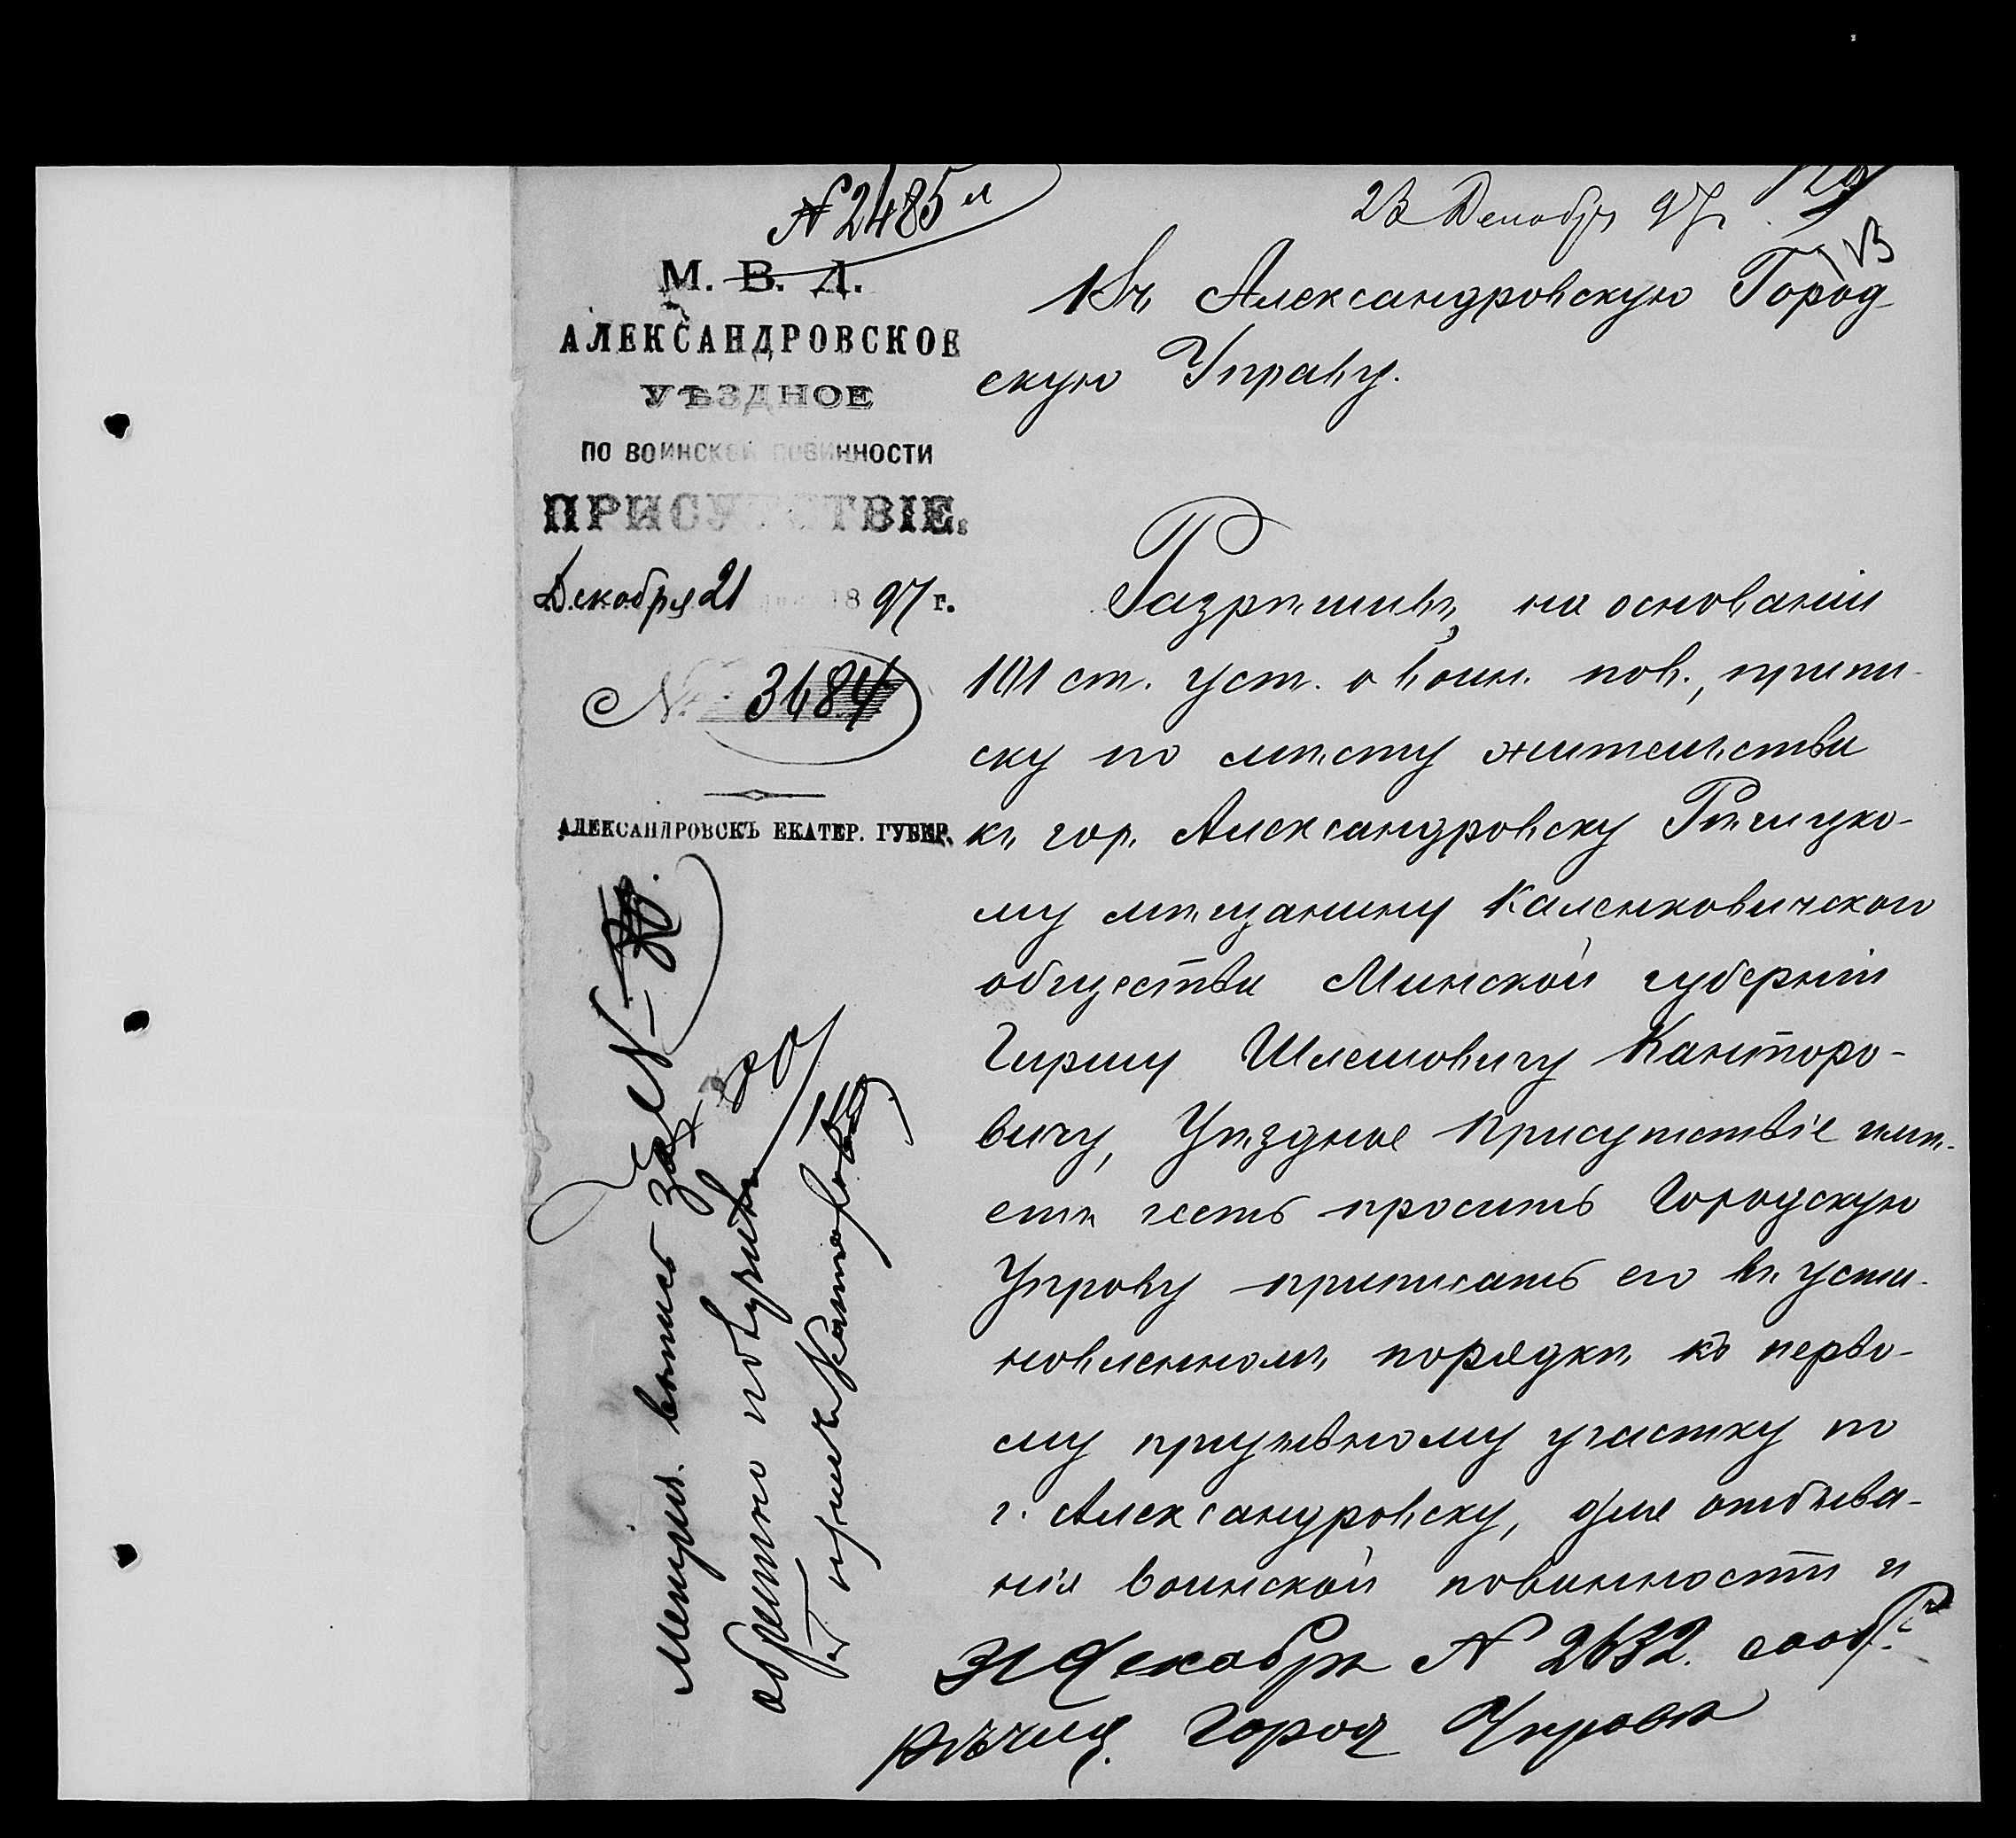 № 2485
23 Декабр 97 г.
М. В. Д.
АЛЕКСАНДРОВСКОЕ
УѢЗДНОЕ
ПО ВОИНСКОЙ ПОВИННОСТИ
ПРИСУТСТВІЕ.
Декабря 21 дня 1897 г.
№ 3484
АЛЕКСАНДРОВСКЪ ЕКАТЕР. ГУБЕР.
Въ Александровскую Город
скую Управу.
Разрѣшивъ, на основаніи
101 ст. уст. о воин. пов., припи-
ску по мѣсту жительства
къ гор. Александровску Рѣчицко-
му мѣщанину Каленковичскаго
общества Минской губерніи
Гиршу Шлемовичу Канторо-
вичу, Уѣздное Присутствіе имѣ-
етъ честь просить Городскую
Управу приписать его въ уста-
новленномъ порядкѣ къ перво-
му призывному участку по
г. Александровску, для отбыва-
нія воинской повинности и
31 Декабря № 2632. сообщ.
Рѣчиц. Город Управѣ
Метрич. выпись за №
обратно получилъ
Гиршъ Канторовичъ